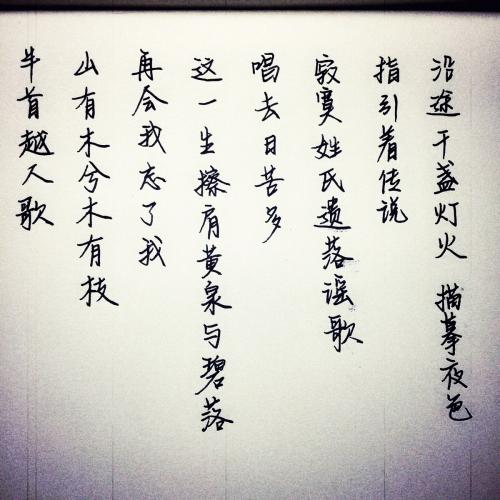 沿途千盏灯火 描摹夜色
指引着传说
寂寞姓氏遗落谣歌
唱去日苦多
这一生擦肩黄泉与碧落
再会我忘了我
山有木兮木有枝
半首越人歌